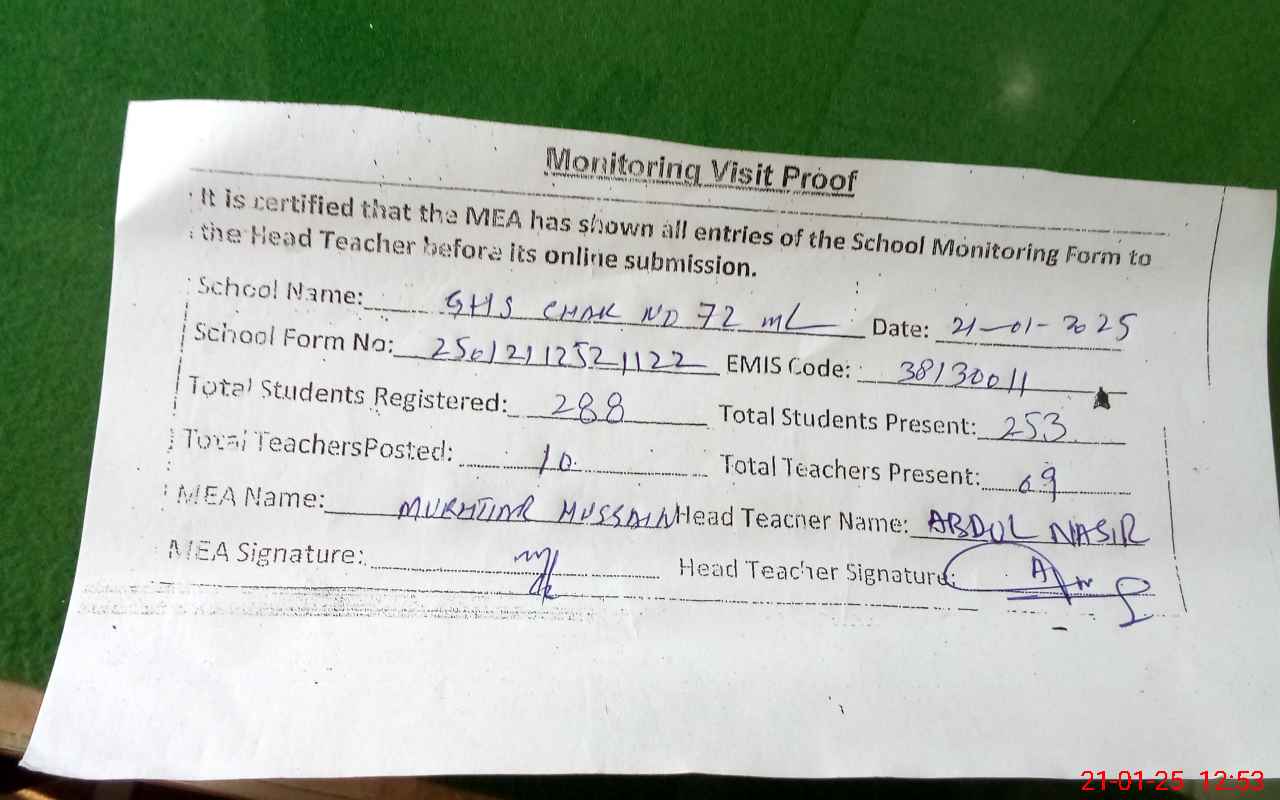 Monitoring Visit Proof
It is certified that the MEA has shown all entries of the School Monitoring Form to
the Head Teacher before its online submission.
School Name: GHS CHAK NO 72 ML Date: 21-01-2025
School Form No: 25012112521122 EMIS Code: 38130011
Total Students Registered: 288 Total Students Present: 253
Total TeachersPosted: 10 Total Teachers Present: 09
MEA Name: MUKHTIAR HUSSAIN Head Teacher Name: ABDUL NASIR
MEA Signature: Head Teacher Signature:
21-01-25 12:53